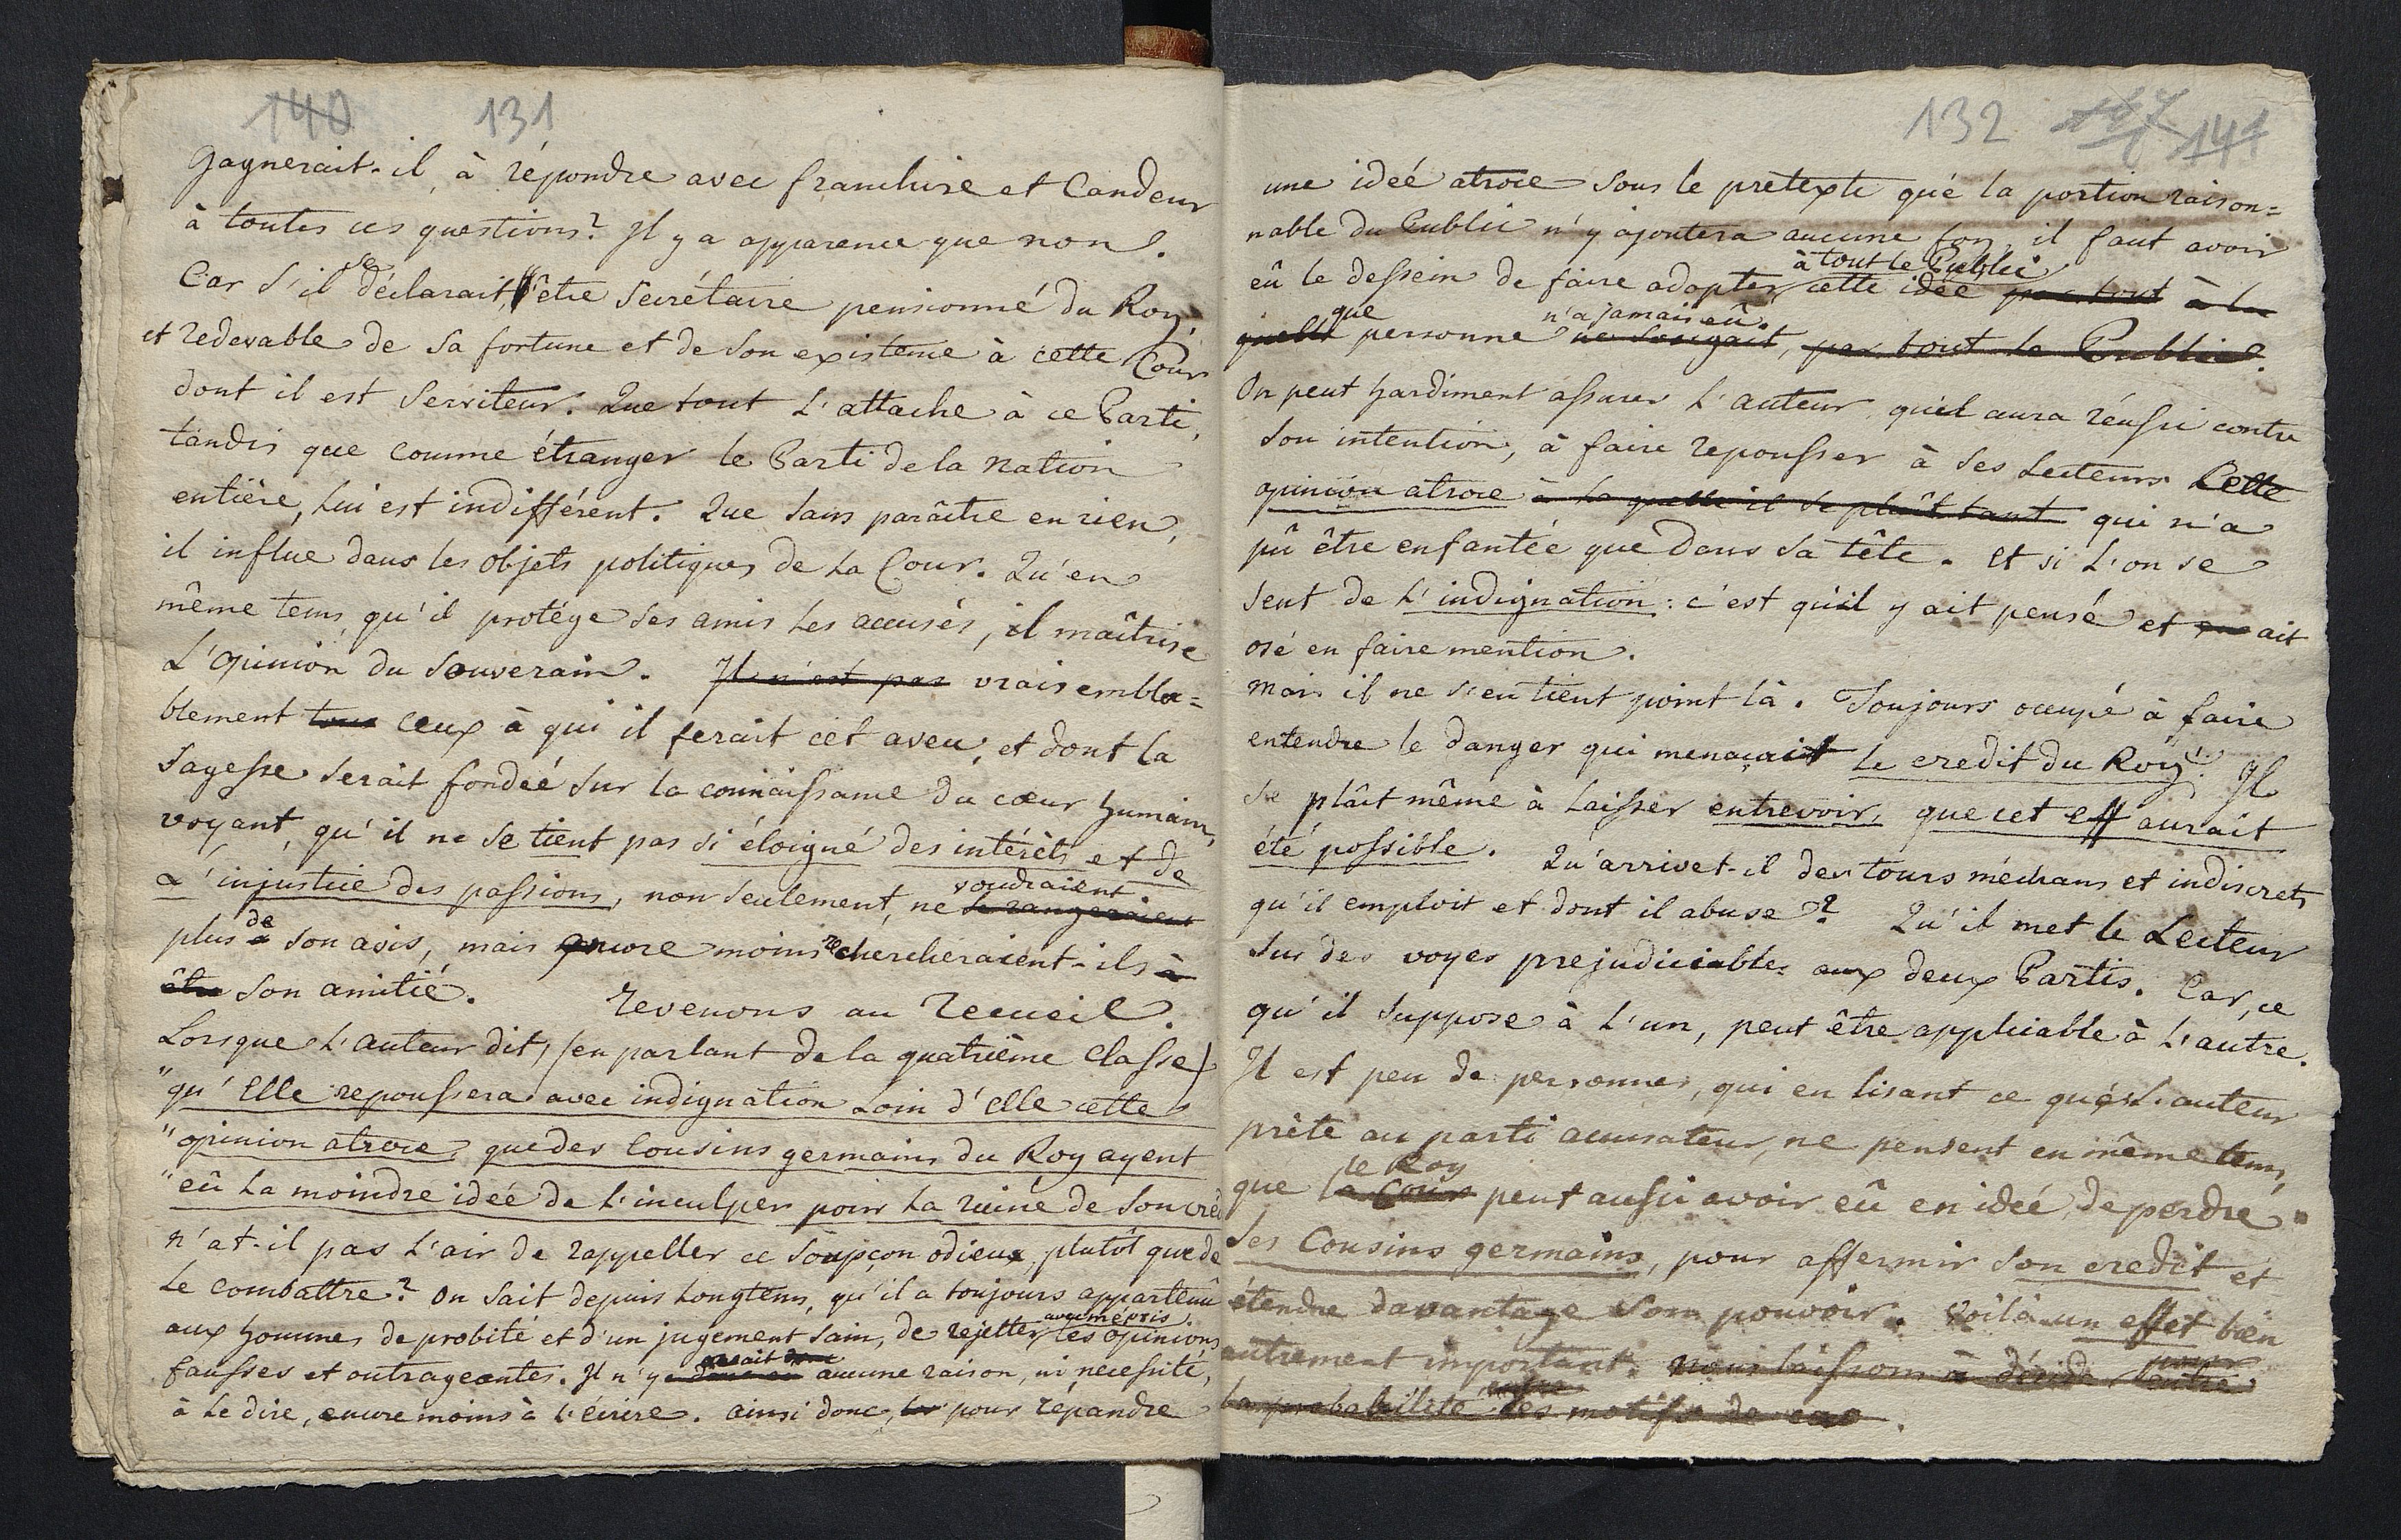 140 131
gagnerait-il, à répondre avec franchise et Candeur
à toutes ces questions? Il y a apparence que non.
Car s'il se déclarait, être Secrétaire pensionné du Roy,
et redevable de sa fortune et de son existence à cette Cour
dont il est Serviteur. Que tout l'attache à ce Parti,
tandis que comme étranger le Parti de la Nation
entière, lui est indifférent. Que sans paraître en rien,
il influe dans les objets politiques de la Cour. Qu'en
même tems qu'il protége ses amis les accusés, il maîtrise
l'opinion du Souverain. Il n'est pas vraisembla=
blement tous ceux à qui il ferait cet aveu, et dont la
sagesse serait fondéé sur la connaissance du cœur humain,
voyant, qu'il ne se tient pas si éloigné des intérêts et de
l'injustice des passions, non seulement, ne voudraient se rangeraient
plus de à son avis, mais encore moins rechercheraient-ils à
être son amitié. Revenons au Recueil.
Lorsque l'auteur dit, (en parlant de la quatrième Classe)
"qu'Elle repoussera avec indignation loin d'elle cette
"opinion atroce, que des Cousins germains du Roy ayent
"eû la moindre ideé de l'inculper pour la ruine de son créd
n'at-il pas l'air de rappeller ce soupçon odieux, plutôt que de
le combattre? On sait depuis longtems, qu'il a toujours appartenû
aux hommes de probité et d'un jugement sain, de rejetter avec mépris les opinions
fausses et outrageantes. Il n'y aucune raison, ni necessité,
à le dire, encore moins à l'écrire. ainsi donc, pour répandre
132 141
une ideé atroce sous le prétexte que la portion raison=
nable du Public n'y ajoutera aucune foy, il faut avoir
eû le dessein de faire adopter à tout le Public cette idée par tout à la
quelle que personne n'a jamais eû. ne songait, par tout le Public.
On peut hardiment assurer l'auteur qu'il aura réussi contre
son intention, à faire repousser à ses Lecteurs Cette
opinion atroce à la quelle il se plaît tant qui n'a
pû être enfantéé que dans sa tête. et si l'on se
sent de l'indignation: c'est qu'il y ait pensé et en ait
osé en faire mention.
Mais il ne s'en tient point là. Toujours occupé à faire
entendre le danger qui menaçait le credit du Roy! Il
se plâit même à laisser entrevoir, que cet eff aurait
été possible. Qu'arrivet-il des tours méchans et indiscrets
qu'il emploit et dont il abuse? Qu'il met le Lecteur
sur des voyes prejudiciables aux deux Partis. Car, ce
qu'il suppose à l'un, peut être applicable à l'autre.
Il est peu de personnes, qui en lisant ce que l'auteur
prête au parti accusateur, ne pensent en même tems,
que le Roy la Cour peut aussi avoir eû en ideé, de perdre
ses Cousins germains, pour affermir son credit et
étendre davantage son pouvoir. Voilà un effet bien
autrement important. nous laissons à décider
la probabilité des motifs de